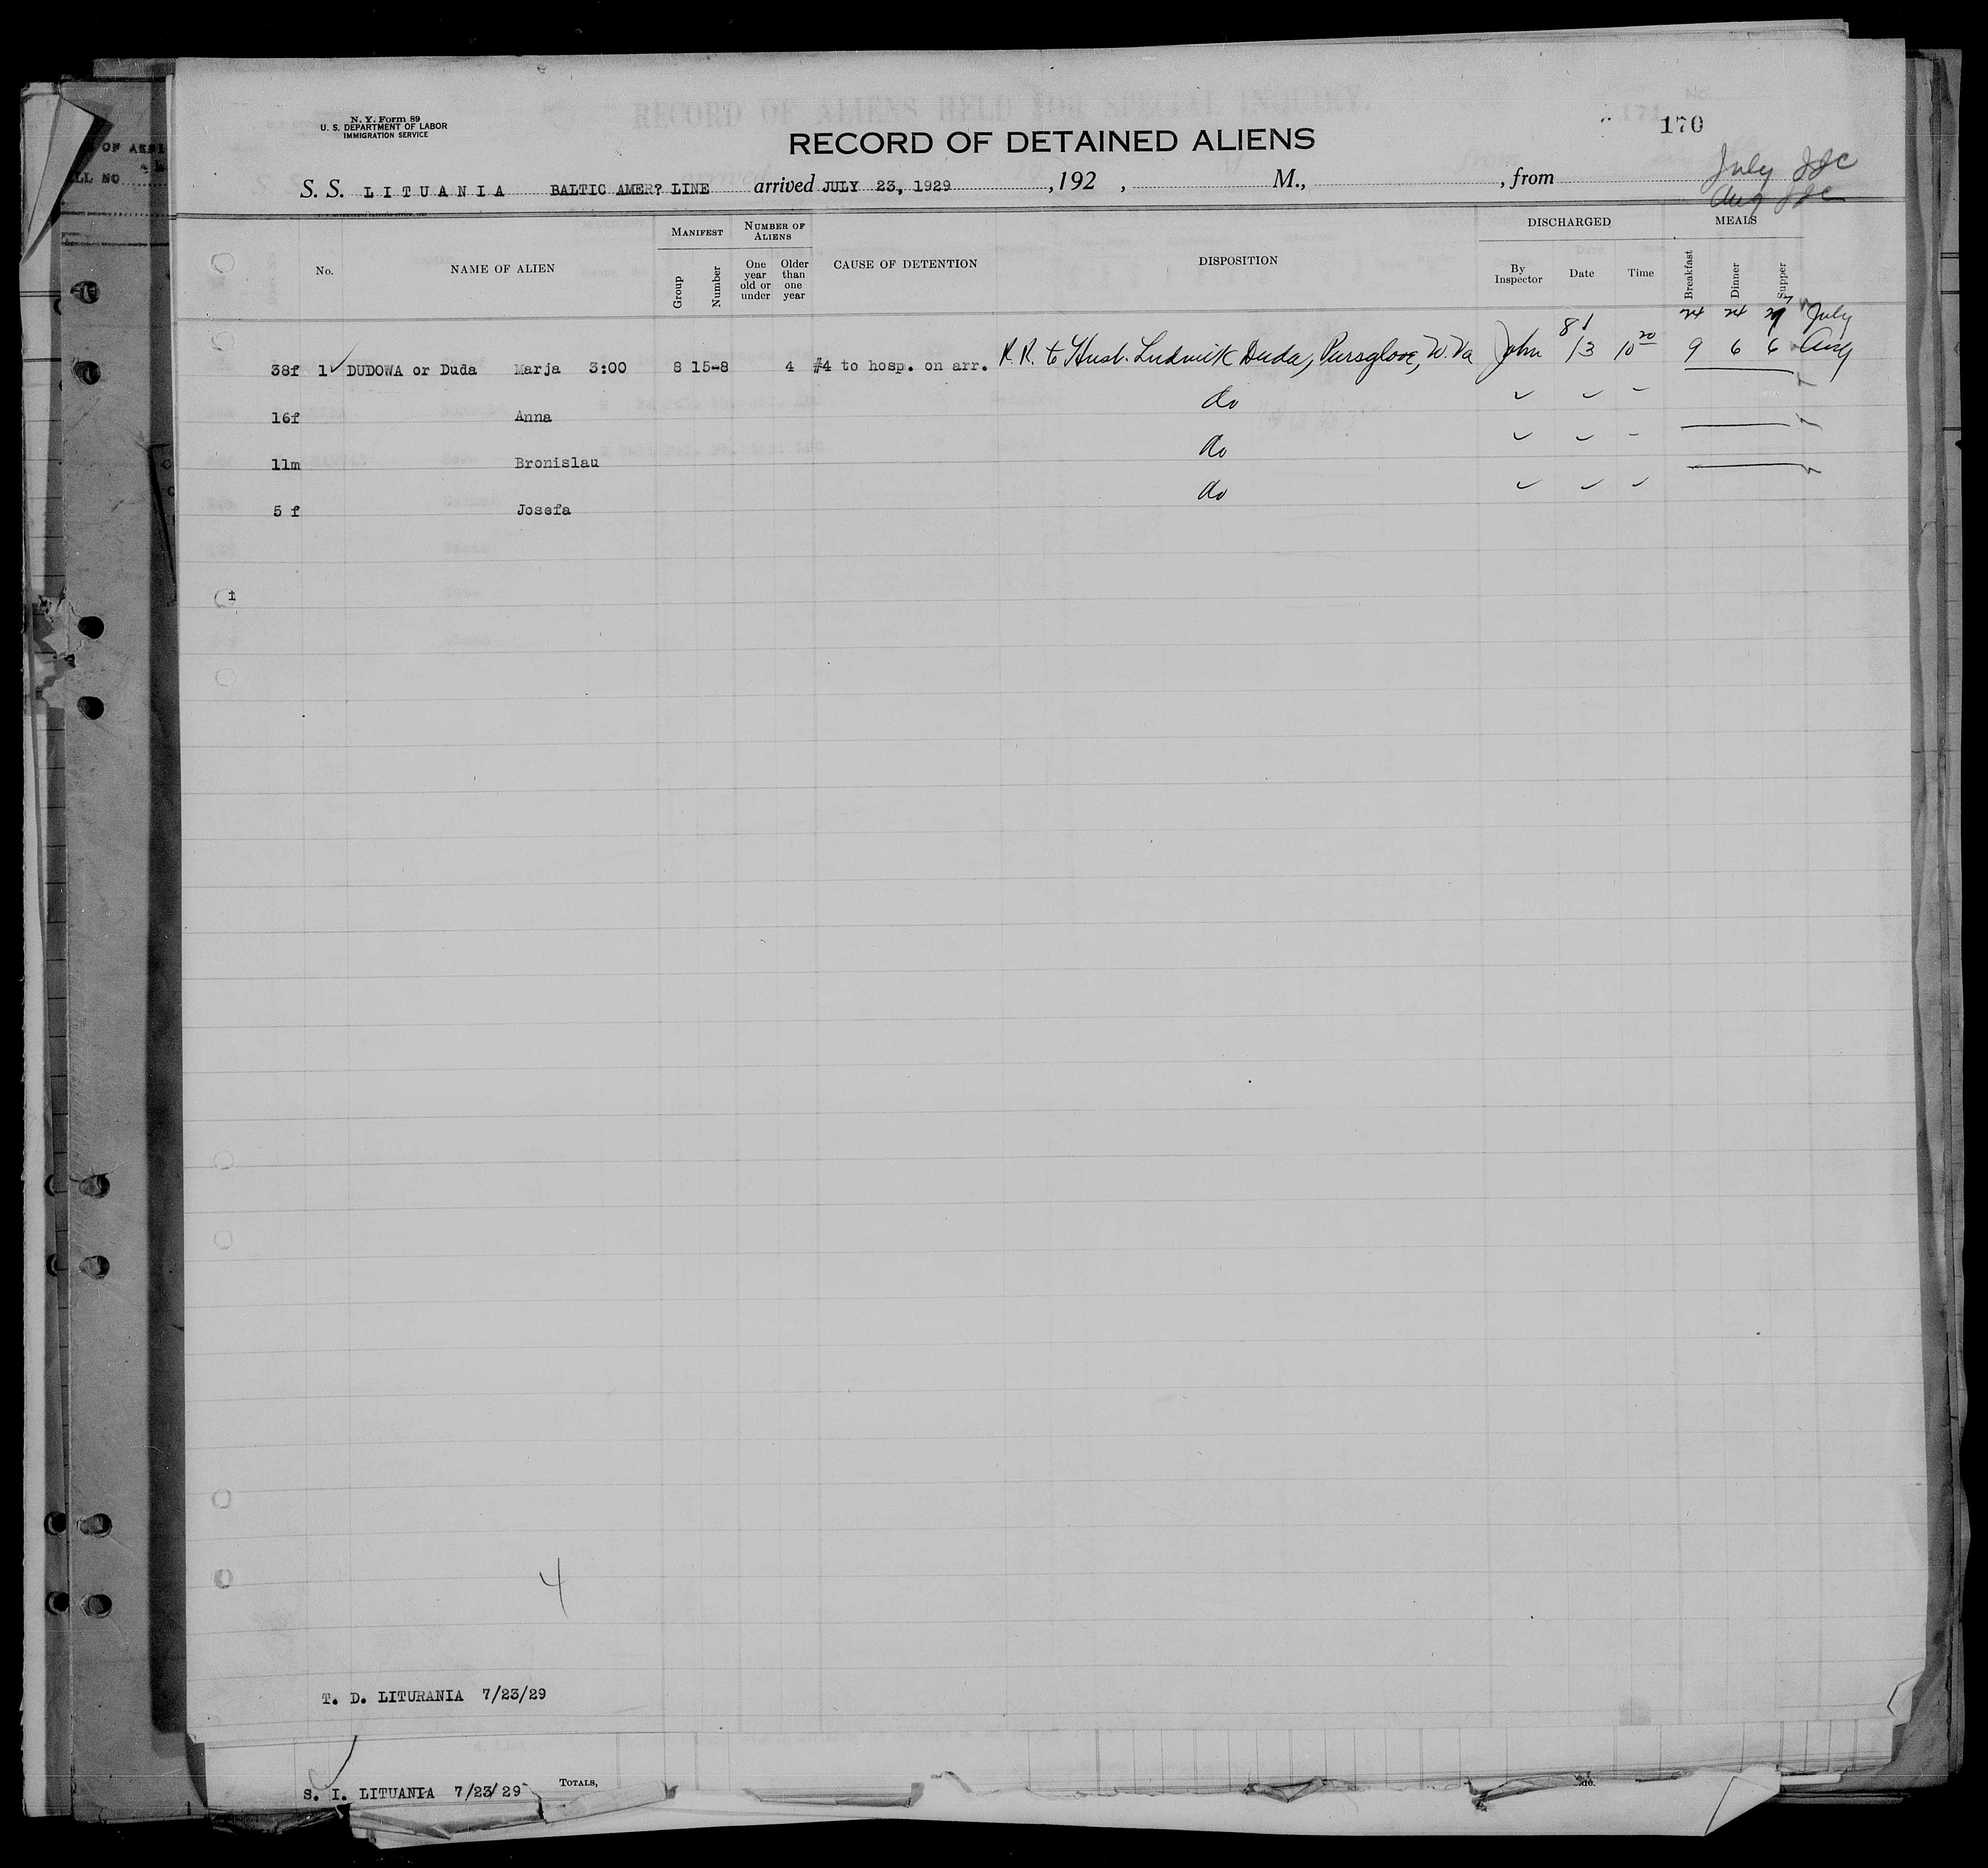 OF ALI
LL NO
N. Y. Form 89
U. S. DEPARTMENT OF LABOR
IMMIGRATION SERVICE
RECORD OF ALIENS HELD FOR SPECIAL INQUIRY.
No.
171
170
RECORD OF DETAINED ALIENS
July JJC
Aug JJC
S. S. LITUANIA BALTIC AMER? LINE arrived JULY 23, 1929 , 192 , M., , from
MANIFEST NUMBER OF ALIENS DISCHARGED MEALS
No. NAME OF ALIEN Group Number One year old or under Older than one year CAUSE OF DETENTION DISPOSITION By Inspector Date Time Breakfast Dinner Supper
24 24 July
38f 1 ✓ DUDOWA or Duda Marja 3:00 8 15-8 4 #4 to hosp. on arr. R.R. to Husb. Ludwik Duda, Pursglove, W. Va John 8/3 10 20 9 6 6 Aug
16f Anna do ✓ ✓ –
11m Bronislau do ✓ ✓ –
5 f Josefa do ✓ ✓ ✓
1
4
T. D. LITURANIA 7/23/29
S. I. LITUANIA 7/23/29 TOTALS,